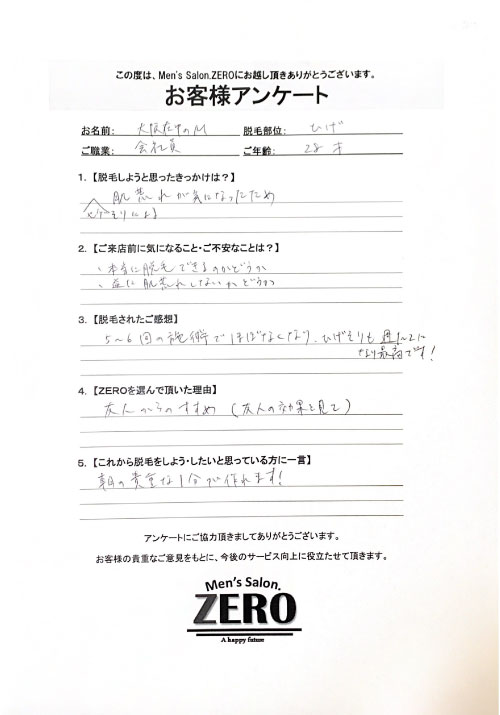 この度は、Men's Salon.ZEROにお越し頂きありがとうございます。
お客様アンケート
お名前: 大阪在中のM 脱毛部位: ひげ
ご職業: 会社員 ご年齢: 28才
1.【脱毛しようと思ったきっかけは？】
肌荒れが気になったため
ヒゲそりによる
2.【ご来店前に気になること・ご不安なことは？】
、本当に脱毛できるのかどうか
、逆に肌荒れしないかどうか
3.【脱毛されたご感想】
5〜6回の施術でほぼなくなり、ひげそりも週1〜2に
なり最高です！
4.【ZEROを選んで頂いた理由】
友人からのすすめ（友人の効果を見て）
5.【これから脱毛をしよう・したいと思っている方に一言】
朝の貴重な1分が作れます！
アンケートにご協力頂きましてありがとうございます。
お客様の貴重なご意見をもとに、今後のサービス向上に役立たせて頂きます。
Men's Salon.
ZERO
A happy future